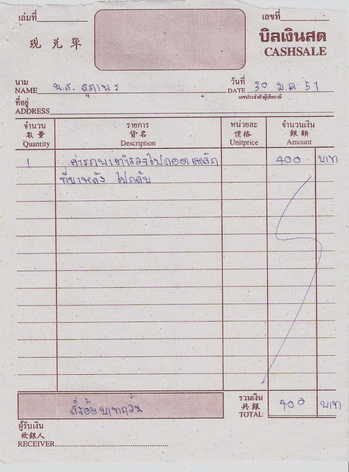 เล่มที่
เลขที่
現兌單
บิลเงินสด
CASHSALE
นาม
NAME น.ส. สุภาพร
วันที่
DATE 30 ม.ค 51
เลขประจำตัวผู้เสียภาษี
ที่อยู่
ADDRESS
จำนวน 數量 Quantity
รายการ 貨名 Description
หน่วยละ 價格 Unitprice
จำนวนเงิน 銀額 Amount
1 ค่ารถพาตำรวจไปถอดเหล็ก 400 บาท
ที่ขาหลัง ไปกลับ
สี่ร้อยบาทถ้วน
รวมเงิน 共銀 TOTAL 400 บาท
ผู้รับเงิน
收銀人
RECEIVER